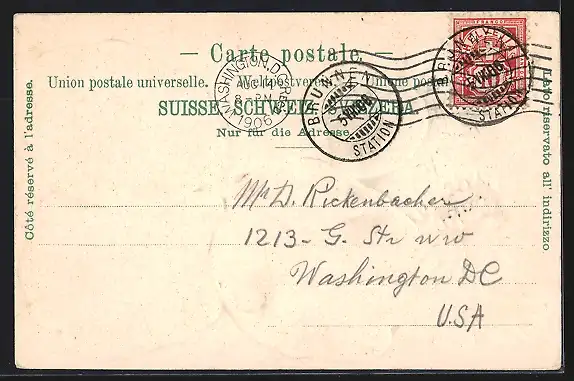 Carte postale.
Union postale universelle. Weltpostverein. Unione postale
SUISSE. SCHWEIZ. SVIZZERA.
Nur für die Adresse.
Côté réservé à l'adresse.
Lato riservato all' indirizzo
WASHINGTON, D.C.
1906
BRUNNEN
STATION
BRUNNEN
STATION
HELVETIA
FRANCO
Mr D. Rickenbacher
1213- G. Str NW
Washington DC
USA